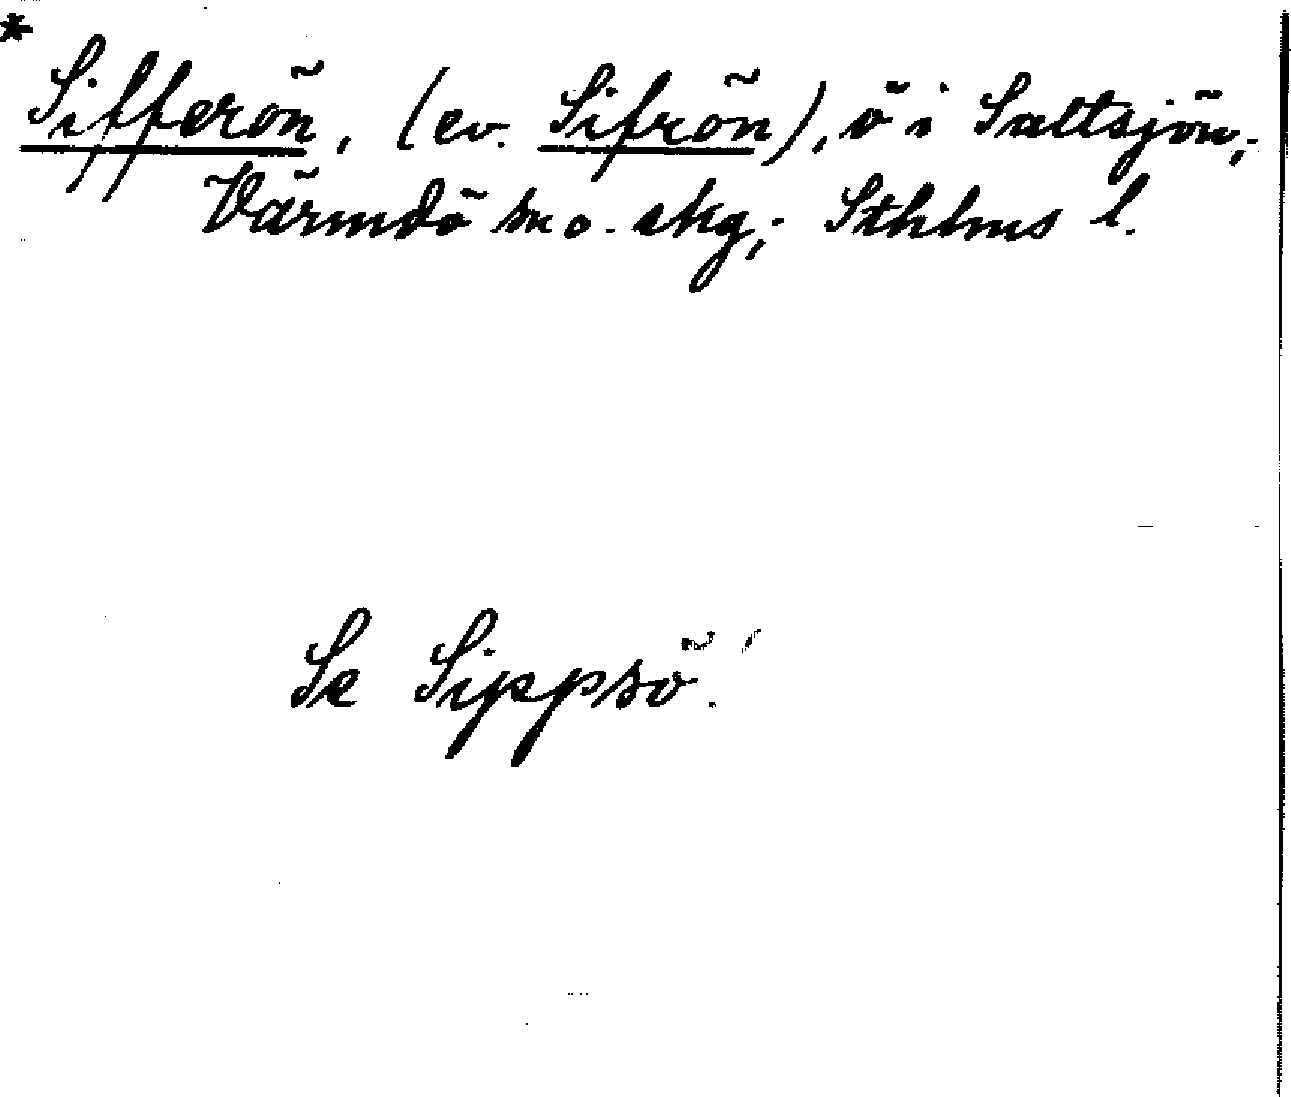 * Sifferön, (ev. Sifrön), ö i Saltsjön,-
Värmdö sn o. skg,- Sthlms l.
Se Sippsö!